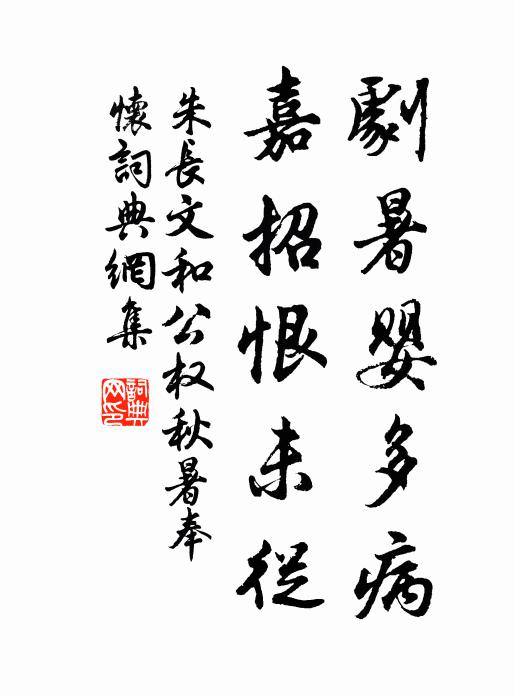 劇暑嬰多病
嘉招恨未從
朱長文和公权秋暑奉
懷詞典網集
詞典網印